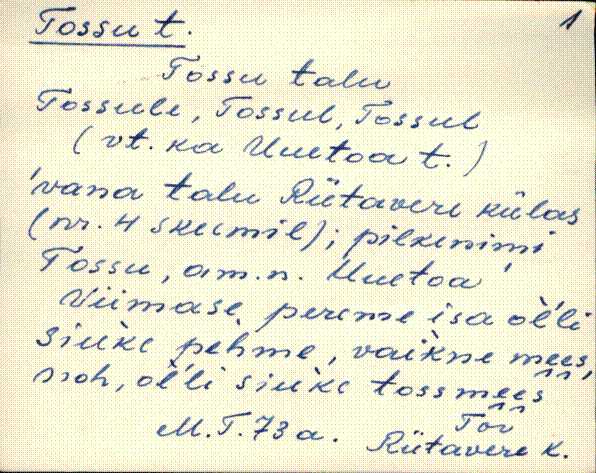 Tossu t. 1
Tossu talu
Tossule, Tossul, Tossul
(vt. ka Uuetoa t.)
'vana talu Rütavere külas
(nr. 4 skeemil); pilkenimi
Tossu, am.n. Uuetoa'
Viimase pereme isa oĺ'li
siuke pehme, vaikne mees,
noh, oĺ'li siuke tossmees
Tõv
M.T. 73 a. Rütavere k.